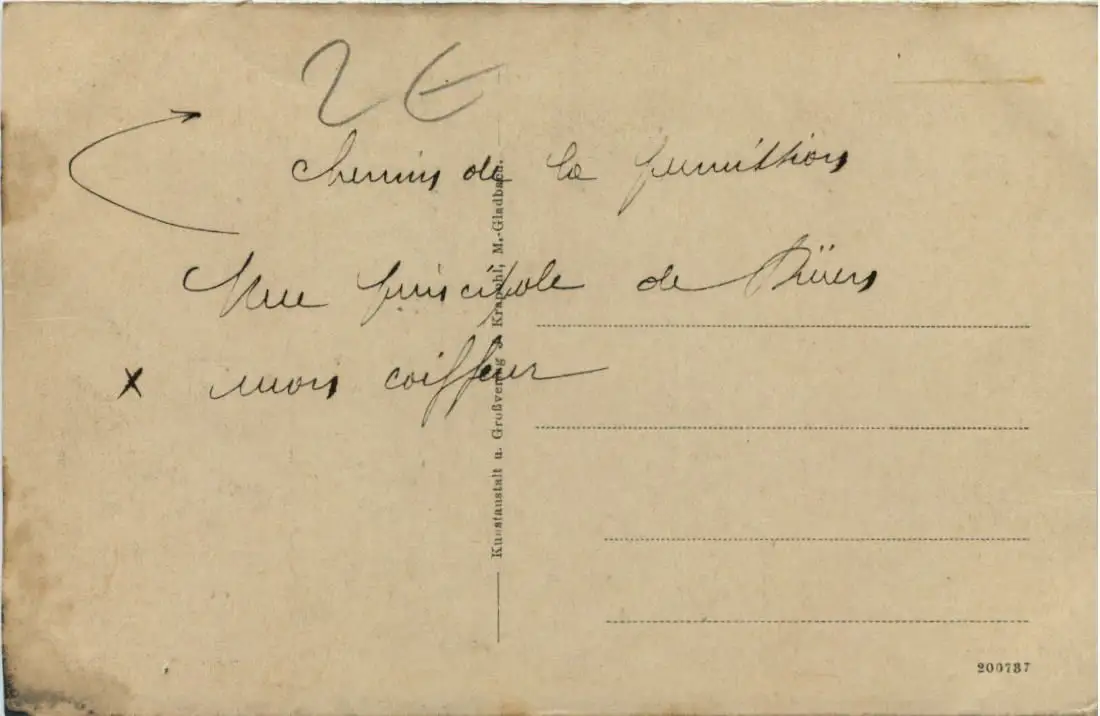 2 €
chemin de la
Rue principale de
x mon coiffeur
Kunstanstalt u. Großverlag J. Krapohl, M.-Gladbach.
200787